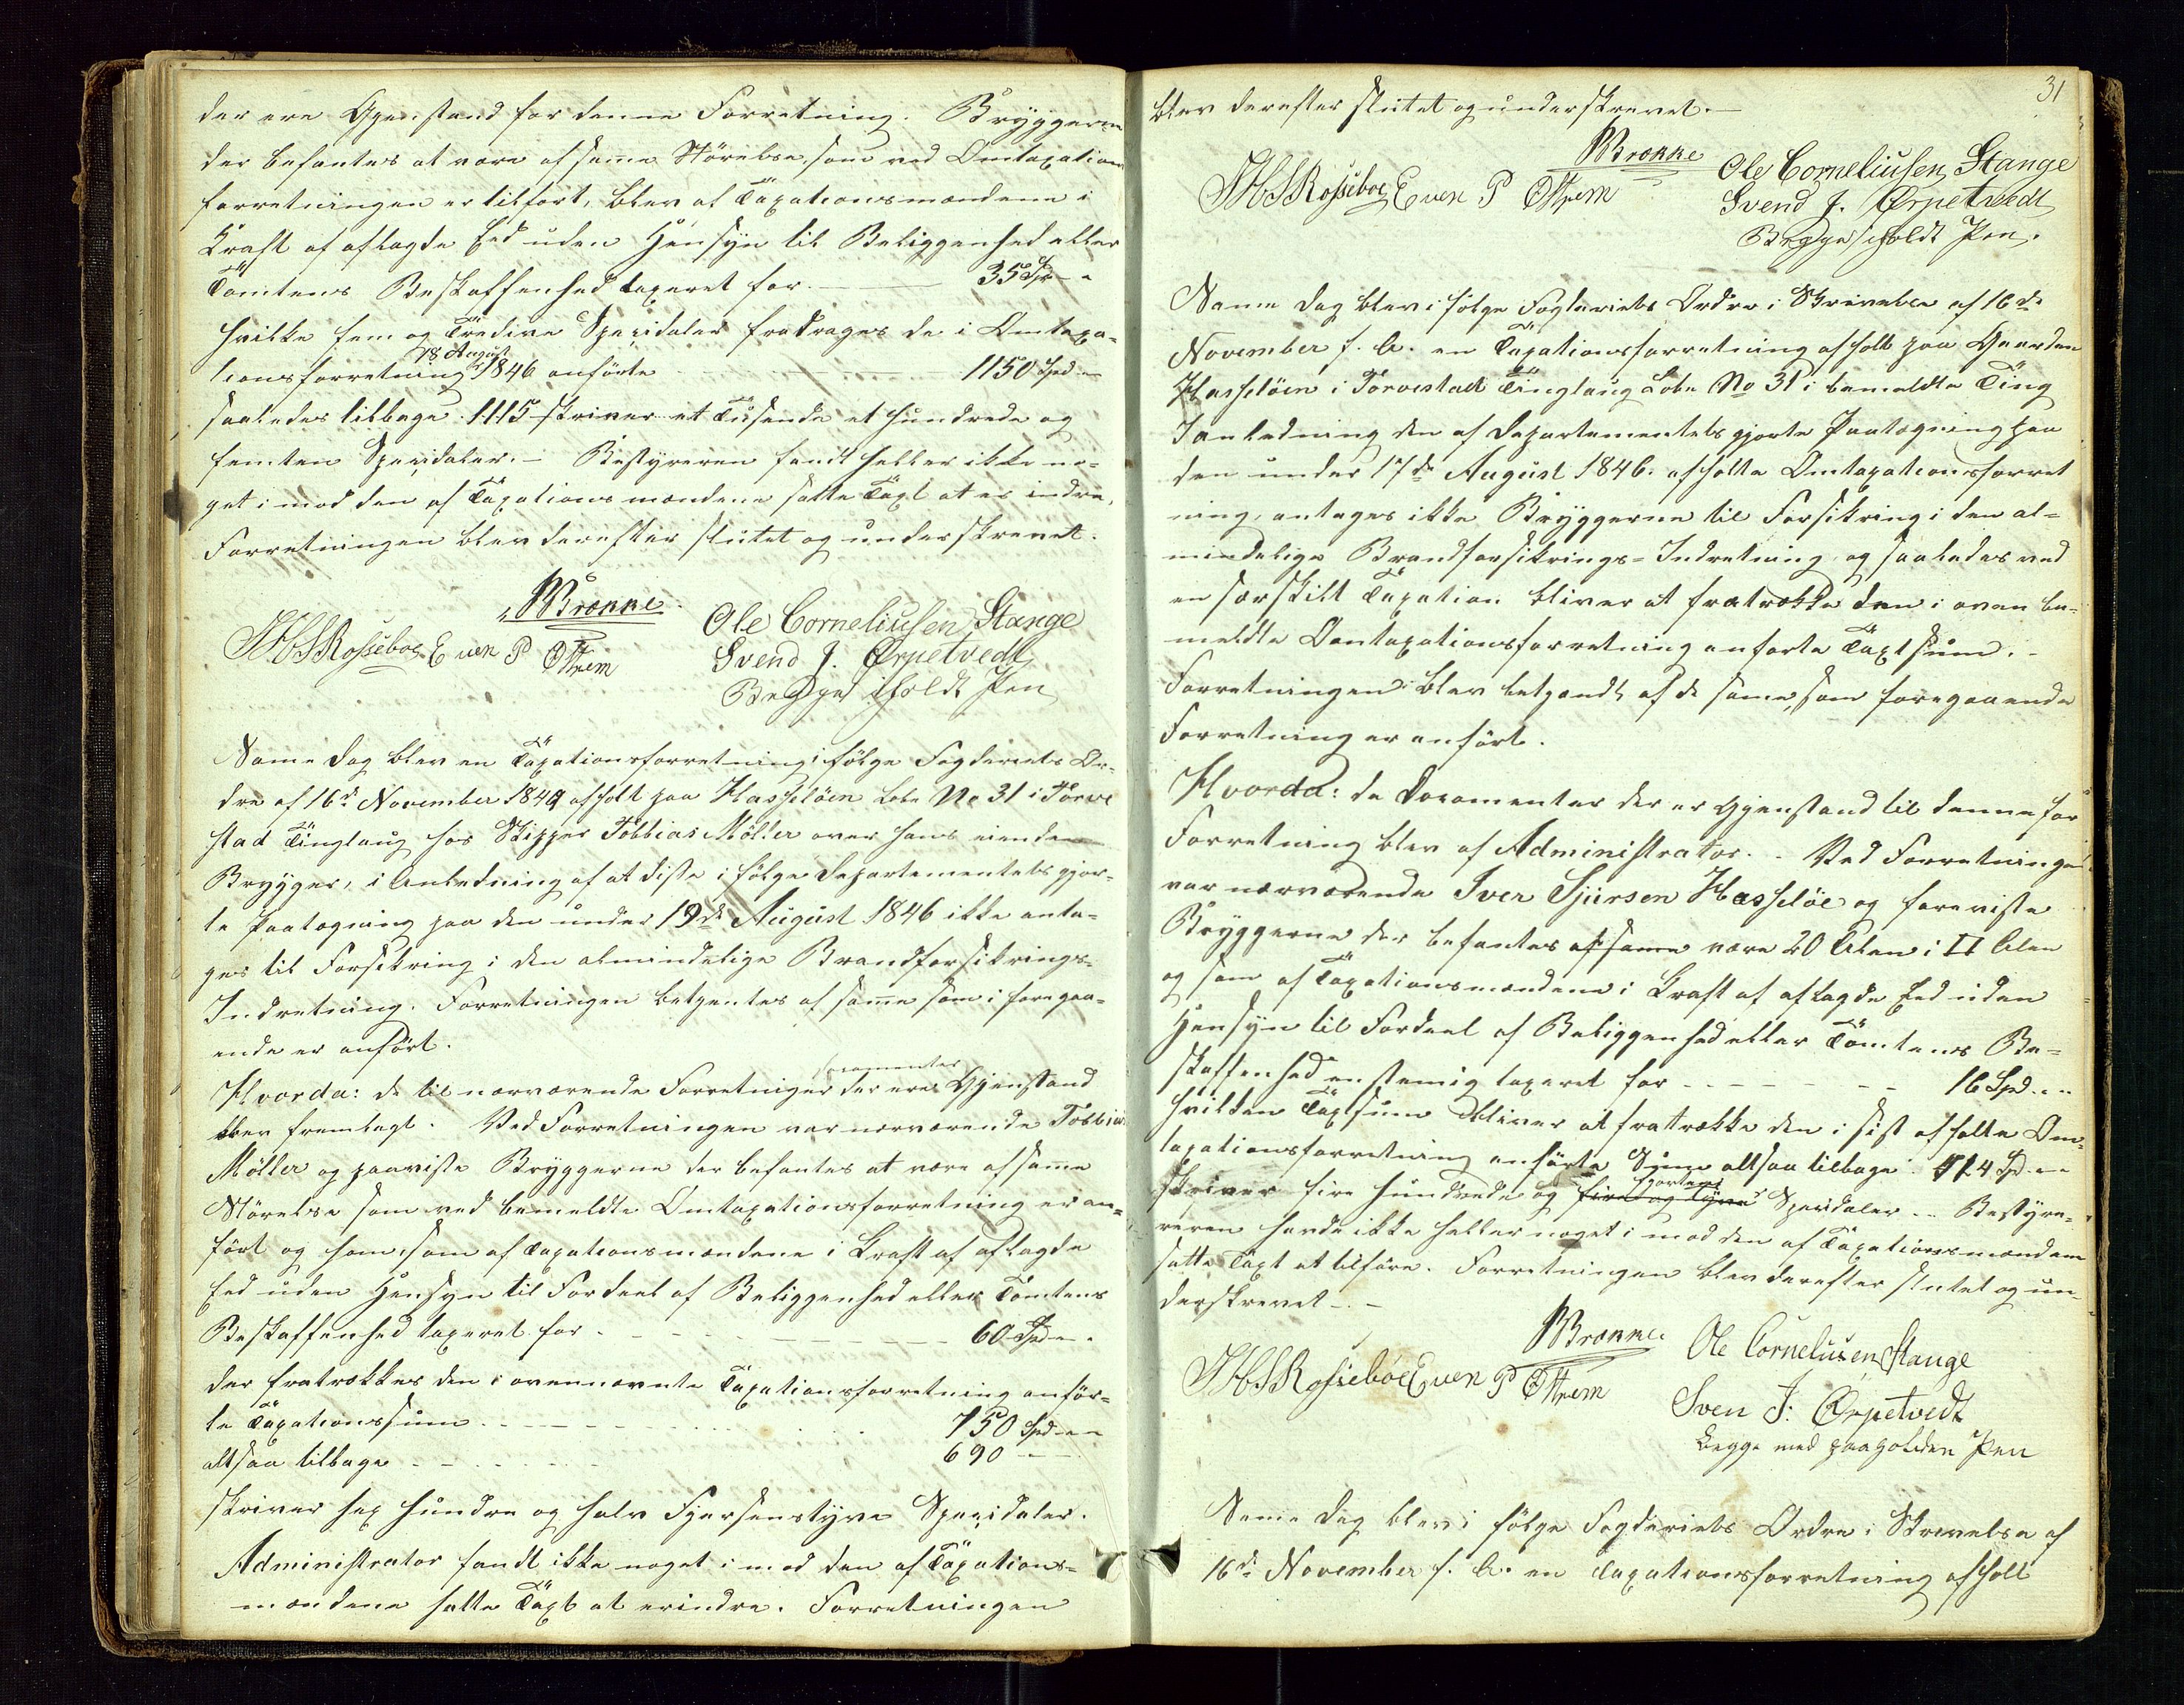 der ere Gjenstand for denne Forretning. Bryggerne
der befantes at være af samme Størelse, som ved Omtaxations
forretningen er tilført, blev af Taxationsmændene i
Kraft af aflagde Eed uden Hensyn til Beliggenhed eller
Tomtens Beskaffenhed taxeret for 35 Spd -
hvilke fem og Tredive Spezidaler fradrages de i Omtaxa-
18 August
tionsforretning 1846 anførte 1150 Spd -
saaledes tilbage 1115 skriver et Tusende et hundrede og
femten Spezidaler. - Bestyreren fandt heller ikke no-
get imod den af Taxationsmændene satte Taxt at erindre,
Forretningen blev derefter sluttet og underskrevet.
Brønne. Ole Corneliusen Stange
Even P Svend J. Ørpetvedt
Begges iholdt Pen
Same Dag blev en Taxationsforretning ifølge Fogderiets Or-
dre af 16de November 1849 afholt paa Hasseløen Løbe No 31 i Torve
stad Tinglaug hos Skipper Tobbias Møller over hans eiendes
Brygger, i Anledning af at disse ifølge Departementets gjor-
te Paategning paa den under 19de August 1846 ikke anta-
ges til Forsikring i den almindelige Brandforsikrings-
Indretning. Forretningen betjentes af same som i foregaa-
ende er anført.
Documenter
Hvorda: de til nærværende Forretninger der ere Gjenstand
blev fremlagt. Ved Forretningen var nærværende Tobbias
Møller og paaviste Bryggerne der befantes at være af same
Størelse som ved bemeldte Omtaxationsforretning er an-
ført og som af Taxationsmændene i Kraft af aflagde
Eed uden Hensyn til Fordeel af Beliggenhed eller Tomtens
Beskaffenhed taxeret for 60 Spd -
der fratrækkes den i ovennævnte Taxationsforretning anfør-
te Taxationssum 750 Spd -
altsaa tilbage 690 -
skriver sex hundre og halv Fjersenstyve Spezidaler.
Administrator fandt ikke noget imod den af Taxations-
mændene satte Taxt at erindre. Forretningen
31
blev derefter sluttet og underskrevet. -
Brønne Ole Corneliusen Stange
Even P Svend J. Ørpetvedt
Begges iholdt Pen.
Same Dag blev ifølge Fogderiets Ordre i Skrivelse af 16de
November f. A. en Taxationsforretning afholt paa Gaarden
Hasseløen i Torvestad Tinglaug Løbe No 31 i bemeldte Ting
I anledning den af Departementets gjorte Paategning paa
den under 17de August 1846. afholte Omtaxationsforret
ning, antages ikke Bryggerne til Forsikring i den al-
mindelige Brandforsikrings-Indretning og saaledes ved
en særskilt Taxation bliver at fratrække den i oven be-
meldte Omtaxationsforretning anførte Taxtsum. -
Forretningen blev betjendt af de same, som foregaaende
Forretning er anført.
Hvorda: de Documenter der er Gjenstand til denne for
Forretning blev af Administrator. - Ved Forretningen
var nærværende Iver Sjursen Hasseløe og foreviste
Bryggerne der befantes af same være 20 Alen i II Alen
og som af Taxationsmændene i Kraft af aflagde Eed uden
Hensyn til Fordeel af Beliggenhed eller Tomtens Be-
skaffenhed enstemig taxeret for 16 Spd -
hvilken Taxtsum bliver at fratrække den i sist afholte Om-
taxationsforretning anførte Sum altsaa tilbage 414 Spd -
fjorten
skriver fire hundrede og fire og tyve Spezidaler. - Bestyre-
reren havde ikke heller noget imod den af Taxationsmændene
satte Taxt at tilføre. Forretningen blev derefter slutet og un-
derskrevet -. -
Brønne. Ole Corneliusen Stange
Even P Sven J: Ørpetvedt
Begge med paaholden Pen
Same Dag blev i følge Fogderiets Ordre i Skrivelse af
16de November f. A. en Taxationsforretning afholt